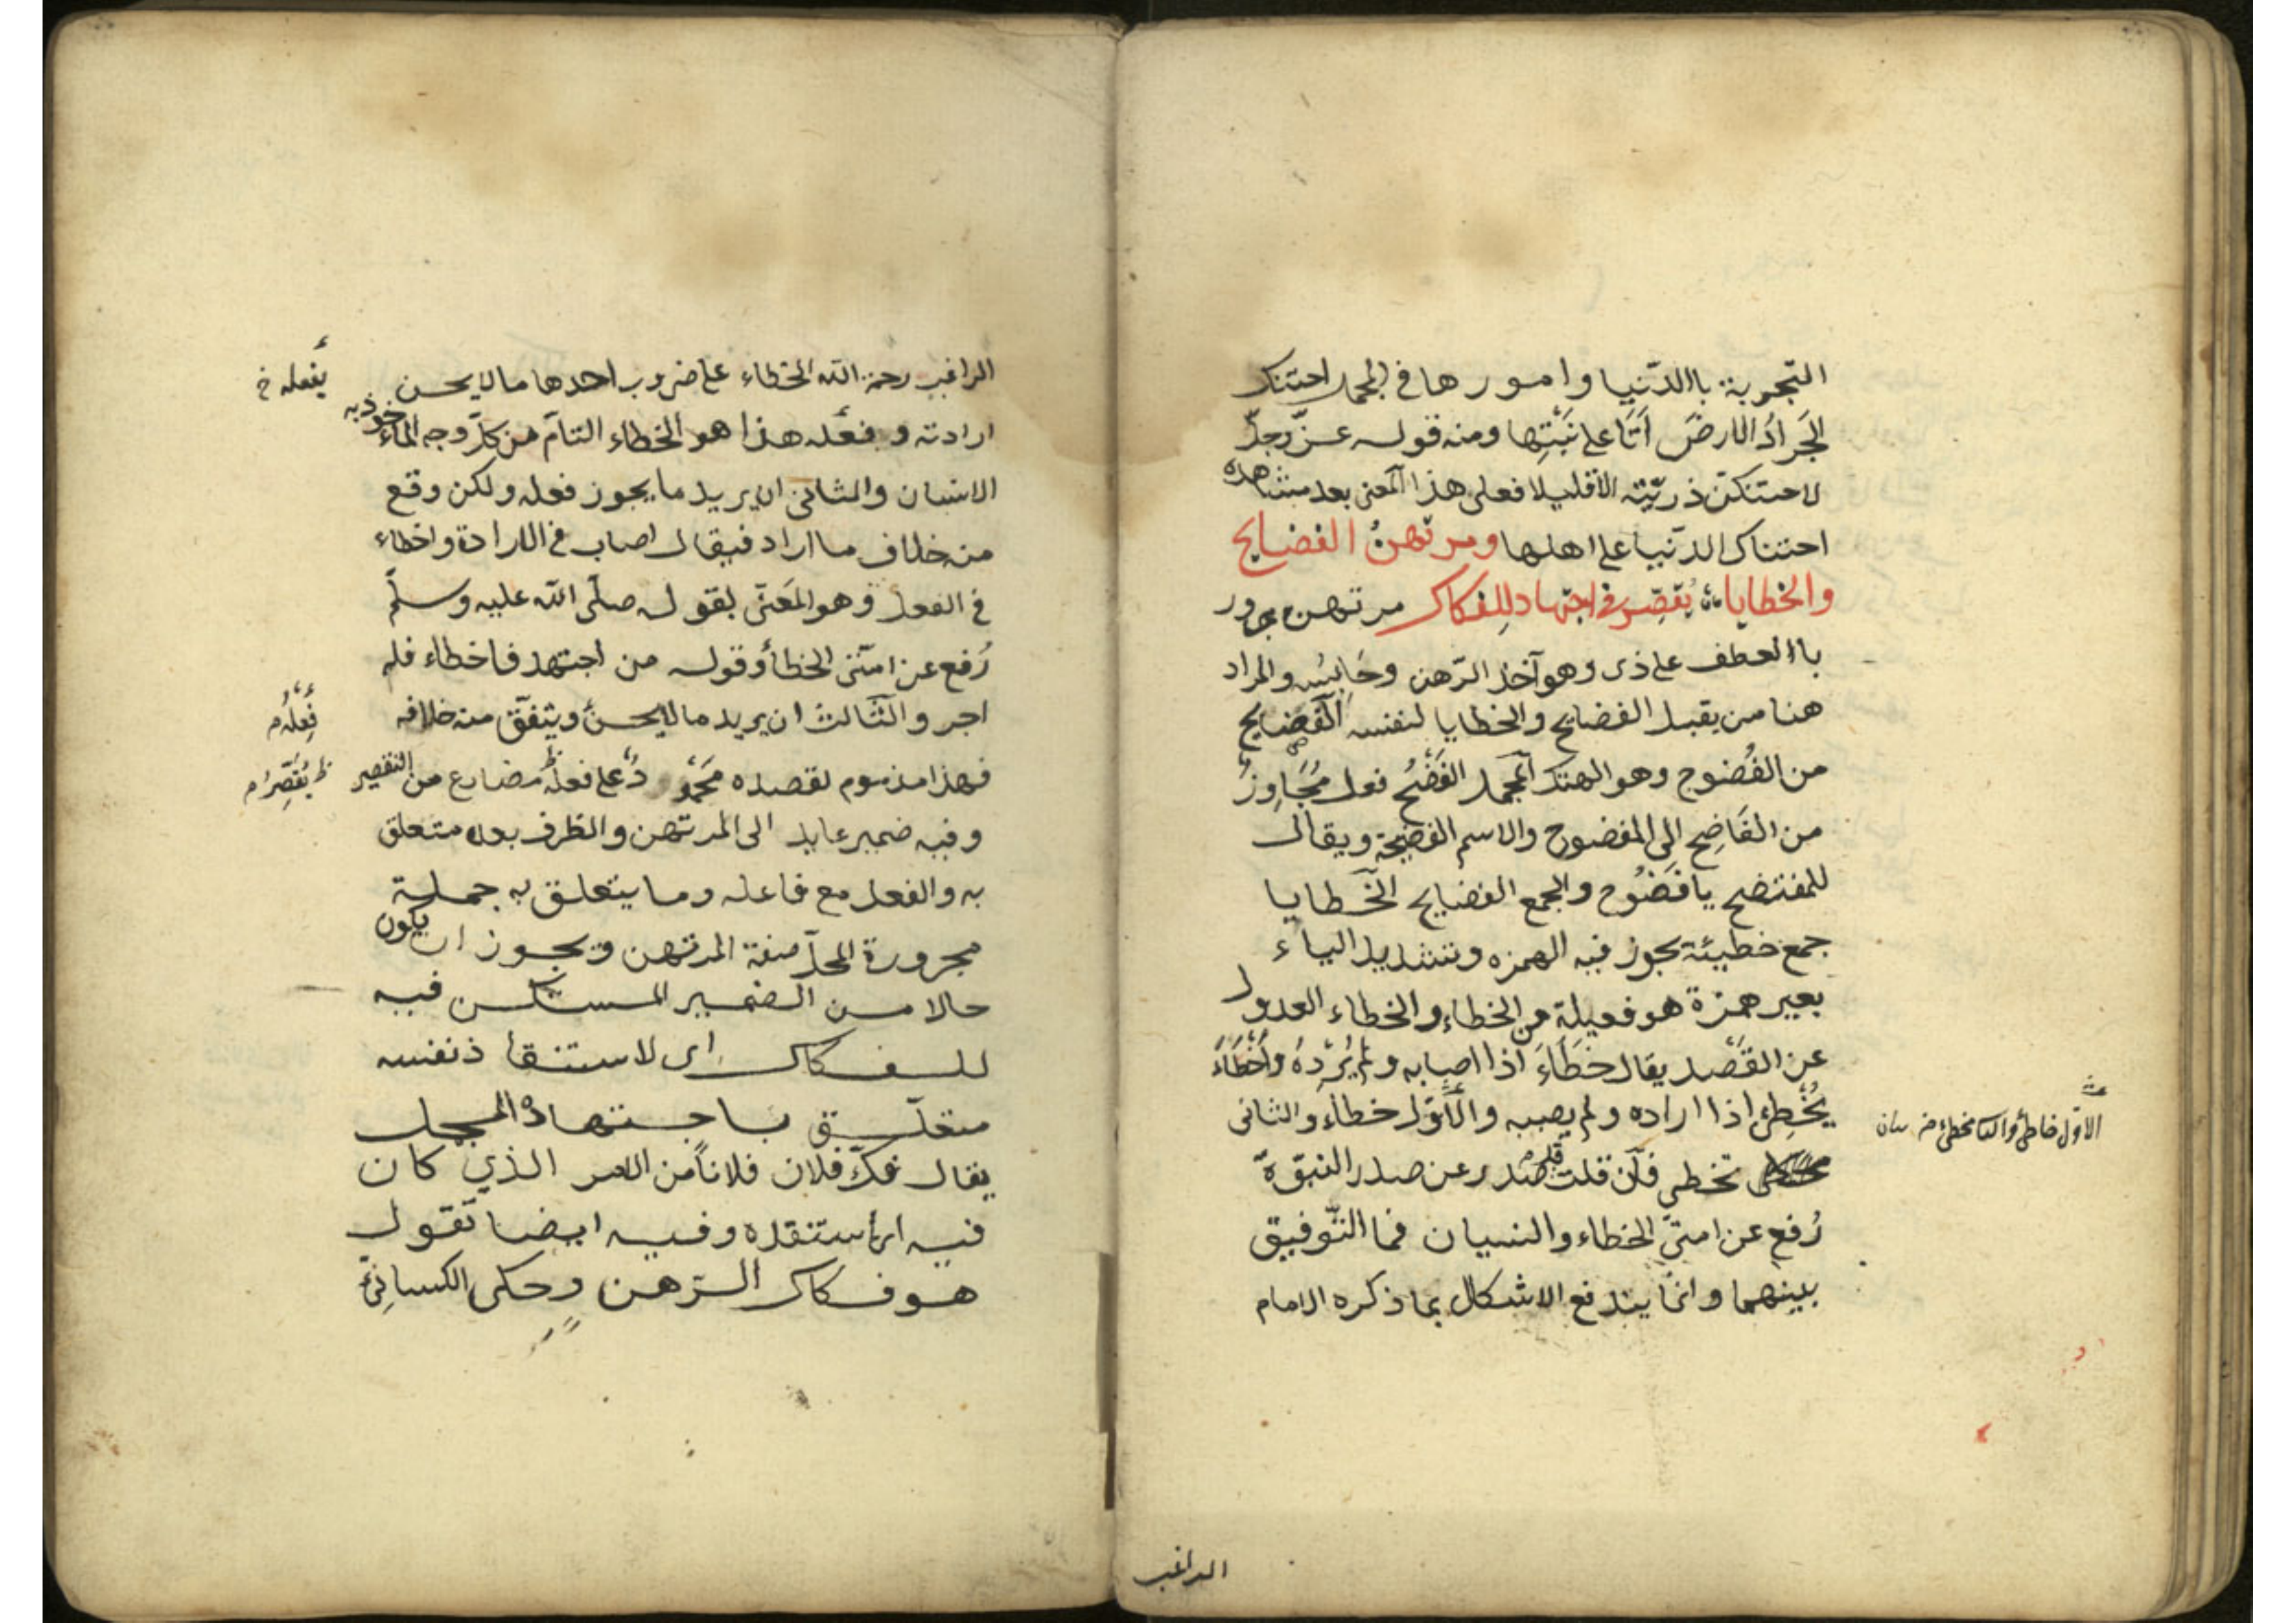 التجربة باالدّنيا وامورها فى المجمل احتنك
الجَرادُ الارضَ اَتَا على نَبْتِها ومنه قوله عزّ وجلّ
لاحتنكنّ ذريّته الاّ قليلا فعلى هذا المعنى بعد مشاهدة
احتناك الدّنيا على اهلها ومرتهنُ الفضايح
والخطايا يُقصِّر فى اجتهاد للفكاك مرتهن مجرور
باالعطف على ذى وهو آخذ الرّهن وحَابِسُه والمراد
هنا من يقبل الفضايح والخطايا لنفسه الفَضايح
من الفُضوح وهو الهتك المجمل الفَضْحُ فعل مُجَاوِزٌ
من الفَاضِح الى المفضوح والاسم الفضيحة ويقال
للمفتضح يا فَضُوح والجمع الفضايح الخَطايا
جمع خطيئة يجوز فيه الهمزه وتشديد الياء
بغير همزة هو فعيلة من الخطاء والخطاء العدول
عن القَصْد يقال خَطَاءَ اذا اصابه ولم يُرِدْهُ واَخْطَاءَ
يُخْطِئ اذا اراده ولم يصبه والاَوّل خطاء والثانى
تخطى فاَن قلت قد صدر عن صدر النبوّة
رُفع عن امتىّ الخطاء والنسيان فما التّوفيق
بينهما وانما يندفع الاشكال بما ذكره الامام
الاوّل خاطئ والثا مخطئ
الراغب
الراغب رحمة الله الخطاء على ضروب احدها مالايحسن
ارادته وفعله هذا هو الخطاء التامّ من كلّ وجه الماءخوذ به
الانسان والثانى ان يريد ما يجوز فعله ولكن وقع
منه خلاف ما اراد فيقال اصاب فى الارادة واخطاء
فى الفعل وهو المَعنىّ بقوله صلّى الله عليه وسلّم
رُفع عن امتىّ الخطأ وقوله من اجتهد فاخطاء فله
اجر والثّالث ان يريد مالايحسنُ ويتّفق منه خلافه
فهذا مذموم لقصده مَحْمُودٌ على فعله مضارع من التقصير
وفيه ضمير عايد الى المرتهن والظرف بعده متعلق
به والفعل مع فاعله وما يتعلق به جملة
مجرورة المحلّ صفة المرتهن ويجوز ان يكون
حالا من الضمير المستكن فيه
للفكاك اى لاستنقاذ نفسه
متعلّق باجتهاد المجمل
يقال فكّ فلان فلاناً من الامر الذي كان
فيه اى استنقده وفيه ايضا تقول
هو فكاك الرّهن وحكى الكسائىّ
يفعله خ
فِعلُه م
ظ يُقَصِّرُ م